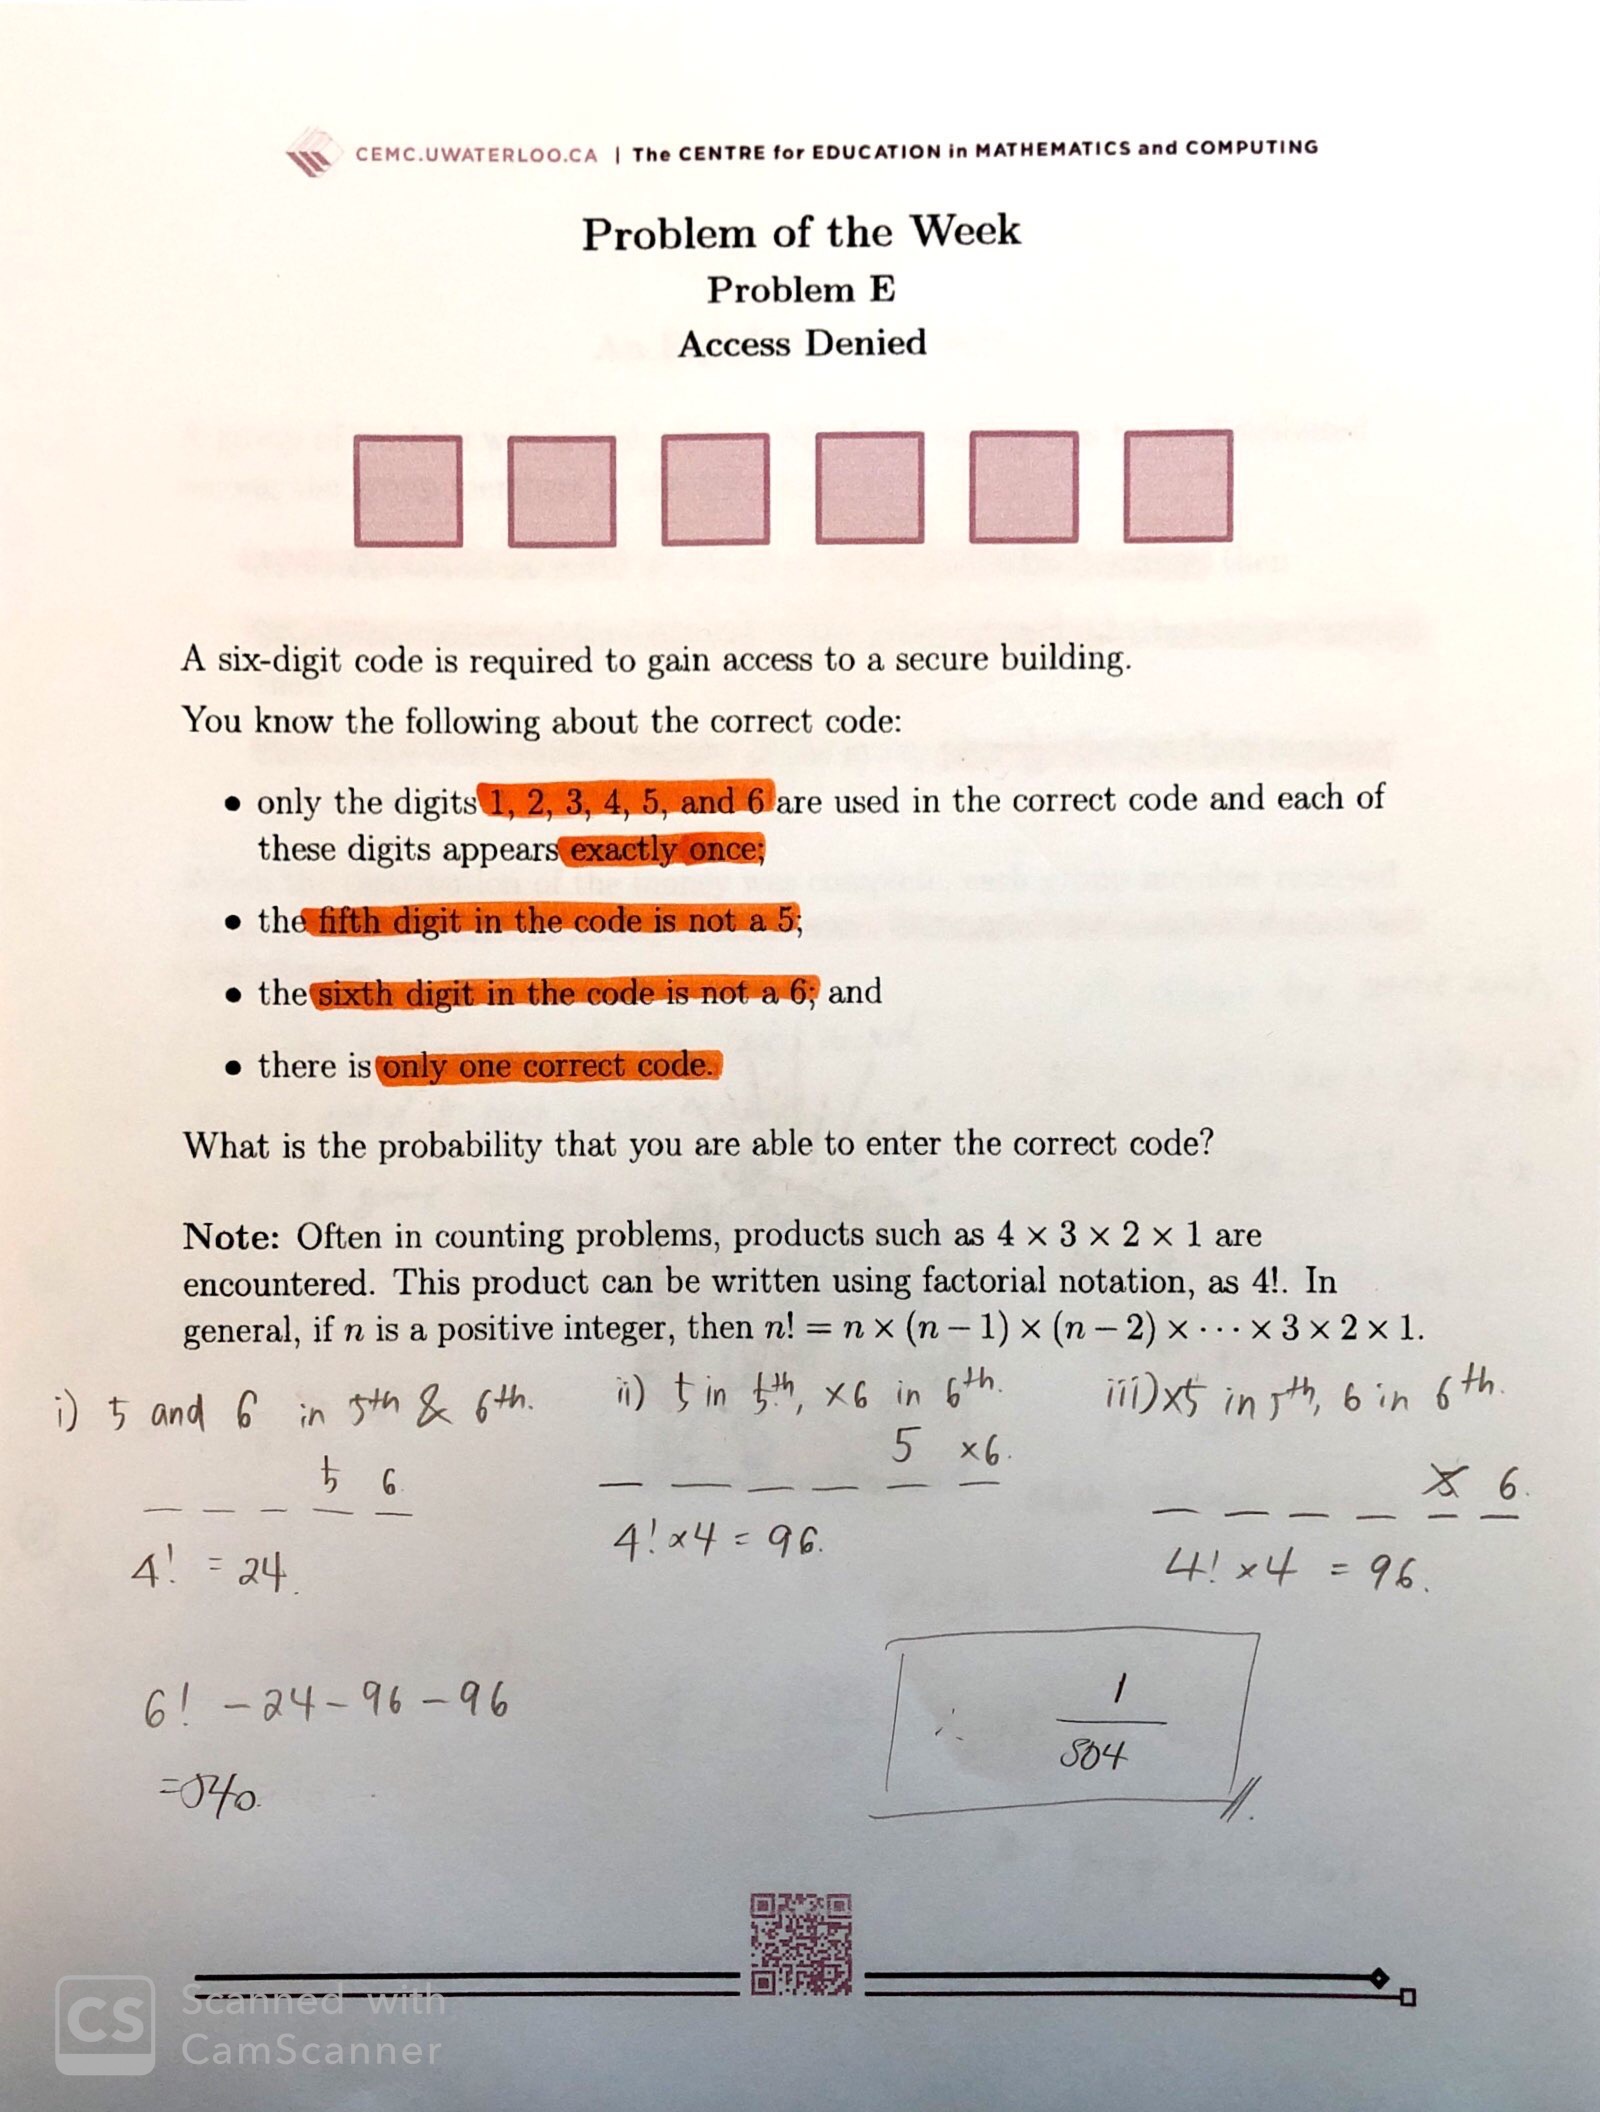 CEMC.UWATERLOO.CA | The CENTRE for EDUCATION in MATHEMATICS and COMPUTING
Problem of the Week
Problem E
Access Denied
A six-digit code is required to gain access to a secure building.
You know the following about the correct code:
• only the digits 1, 2, 3, 4, 5, and 6 are used in the correct code and each of
these digits appears exactly once;
• the fifth digit in the code is not a 5;
• the sixth digit in the code is not a 6; and
• there is only one correct code.
What is the probability that you are able to enter the correct code?
Note: Often in counting problems, products such as 4 × 3 × 2 × 1 are
encountered. This product can be written using factorial notation, as 4!. In
general, if n is a positive integer, then n! = n × (n − 1) × (n − 2) × ⋯ × 3 × 2 × 1.
i) 5 and 6 in 5th & 6th.
5 6.
4! = 24.
ii) 5 in 5th, ×6 in 6th.
5 ×6.
4! × 4 = 96.
iii) ×5 in 5th, 6 in 6th.
5 6.
4! × 4 = 96.
6! − 24 − 96 − 96
= 540.
∴ 1
504
CS
Scanned with
CamScanner